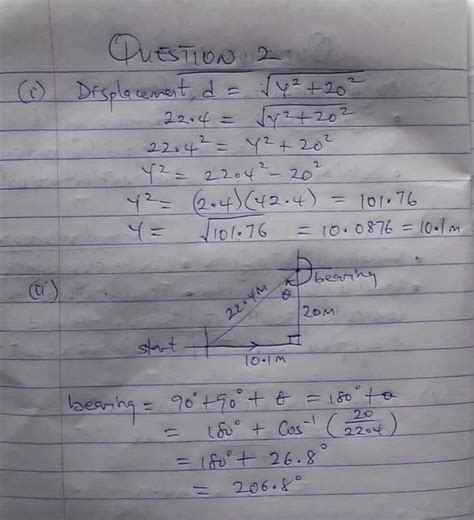 QUESTION 2
(i) Displacement, d = √(Y² + 20²)
22.4 = √(Y² + 20²)
22.4² = Y² + 20²
Y² = 22.4² - 20²
Y² = (2.4)(42.4) = 101.76
Y = √101.76 = 10.0876 = 10.1m
(ii)
bearing
θ
22.4m
20m
start
10.1m
bearing = 90° + 90° + θ = 180° + θ
= 180° + Cos⁻¹ (20/22.4)
= 180° + 26.8°
= 206.8°